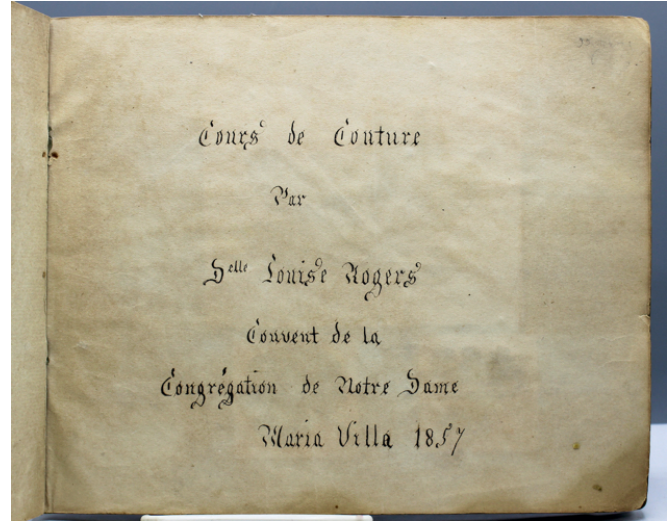 Cours de Couture
Par
Delle Louise Rogers
Couvent de la
Congrégation de Notre Dame
Maria Villa 1857